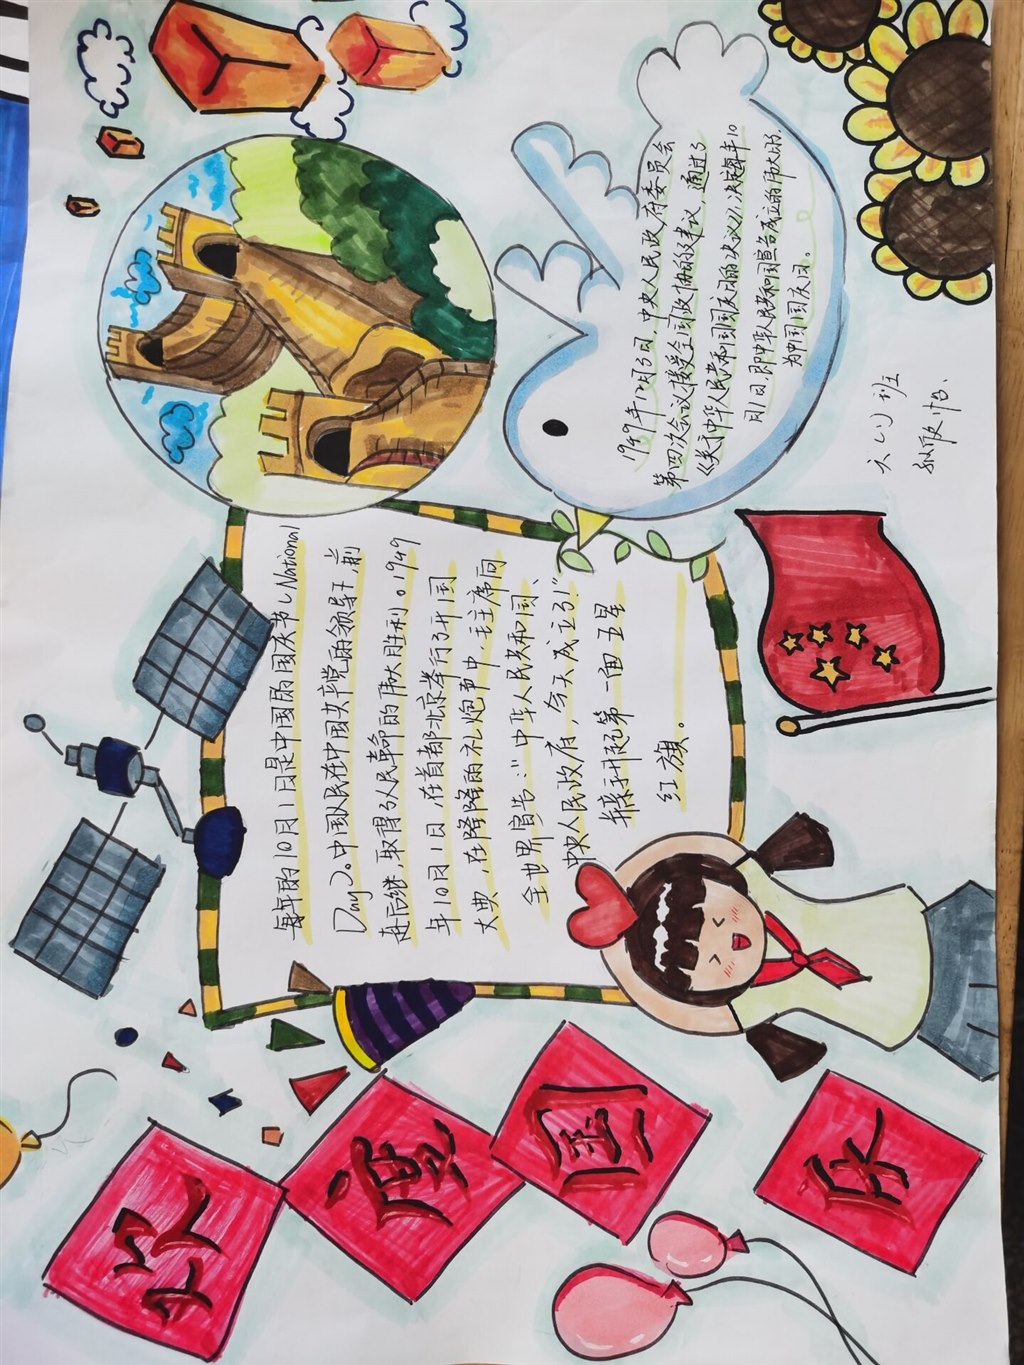 欢度国庆
每年的10月1日是中国的国庆节(National
Day)。中国人民在中国共产党的领导下,前
赴后继,取得了人民革命的伟大胜利。1949
年10月1日,在首都北京举行了开国
大典,在隆隆的礼炮声中,毛主席向
全世界宣告:“中华人民共和国、
中央人民政府,今天成立了!”
并亲手升起第一面五星
红旗。
1949年12月3日,中央人民政府委员会
第四次会议接受全国政协的建议,通过了
《关于中华人民共和国国庆日的决议》,决定每年10
月1日,即中华人民共和国宣告成立的伟大的
为中国国庆日。
六(1)班